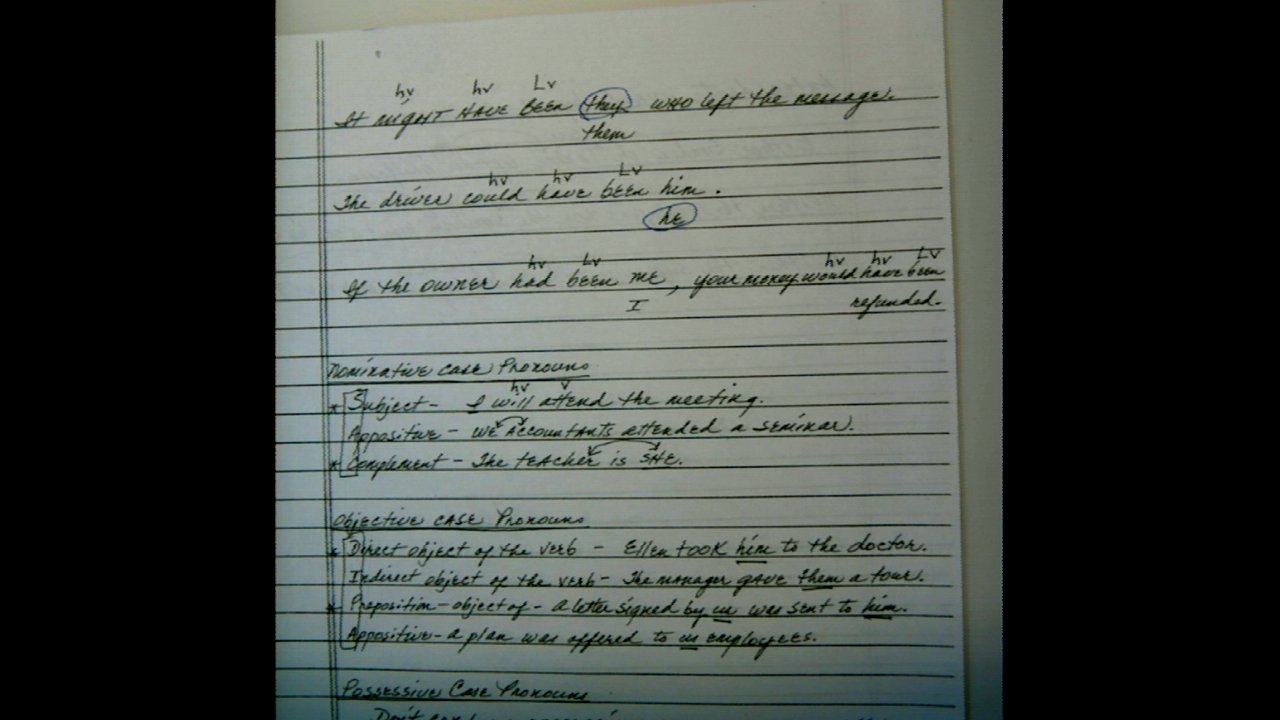 hv hv Lv
It might HAVE BEEN they who left the message.
them
hv hv Lv
The driver could have been him.
he
hv Lv hv hv LV
If the owner had been me, your money would have been
I refunded.
Nominative case Pronouns
hv v
* Subject - I will attend the meeting.
Appositive - we Accountants attended a seminar.
* Complement - The teAcher is SHE.
Objective CASE Pronouns
* Direct object of the verb - Ellen took him to the doctor.
Indirect object of the verb - The manager gave them a tour.
* Preposition - object of - a letter signed by us was sent to him.
Appositive - a plan was offered to us employees.
Possessive Case Pronouns
Don't